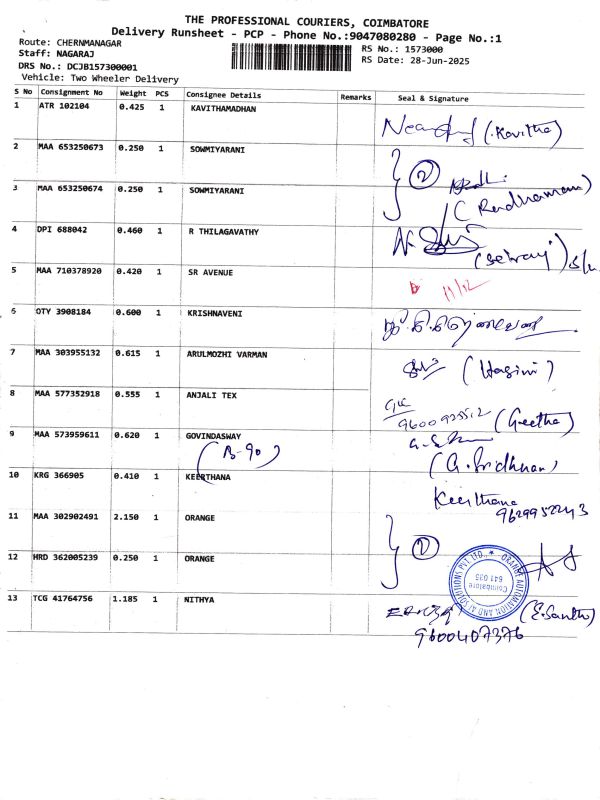 THE PROFESSIONAL COURIERS, COIMBATORE
Delivery Runsheet - PCP - Phone No.:9047080280 - Page No.:1
Route: CHERNMANAGAR
Staff: NAGARAJ
DRS No.: DCJB157300001
Vehicle: Two Wheeler Delivery
RS No.: 1573000
RS Date: 28-Jun-2025
S No Consignment No Weight PCS Consignee Details Remarks Seal & Signature
1 ATR 102104 0.425 1 KAVITHAMADHAN
(Kavitha)
2 MAA 653250673 0.250 1 SOWMIYARANI
2
3 MAA 653250674 0.250 1 SOWMIYARANI
(Radhamani)
4 DPI 688042 0.460 1 R THILAGAVATHY
(Selvaraj) S/
5 MAA 710378920 0.420 1 SR AVENUE
11/12
6 OTY 3908184 0.600 1 KRISHNAVENI
7 MAA 303955132 0.615 1 ARULMOZHI VARMAN
(Hasini)
8 MAA 577352918 0.555 1 ANJALI TEX
(Geetha)
9 MAA 573959611 0.620 1 GOVINDASWAY
(B-90)
10 KRG 366905 0.410 1 KEERTHANA
Keerthana
9629952243
11 MAA 302902491 2.150 1 ORANGE
2
12 HRD 362005239 0.250 1 ORANGE
ORANGE AUTOMATION AND AI SOLUTIONS PVT. LTD.,
Coimbatore
641 035
13 TCG 41764756 1.185 1 NITHYA
9600407376